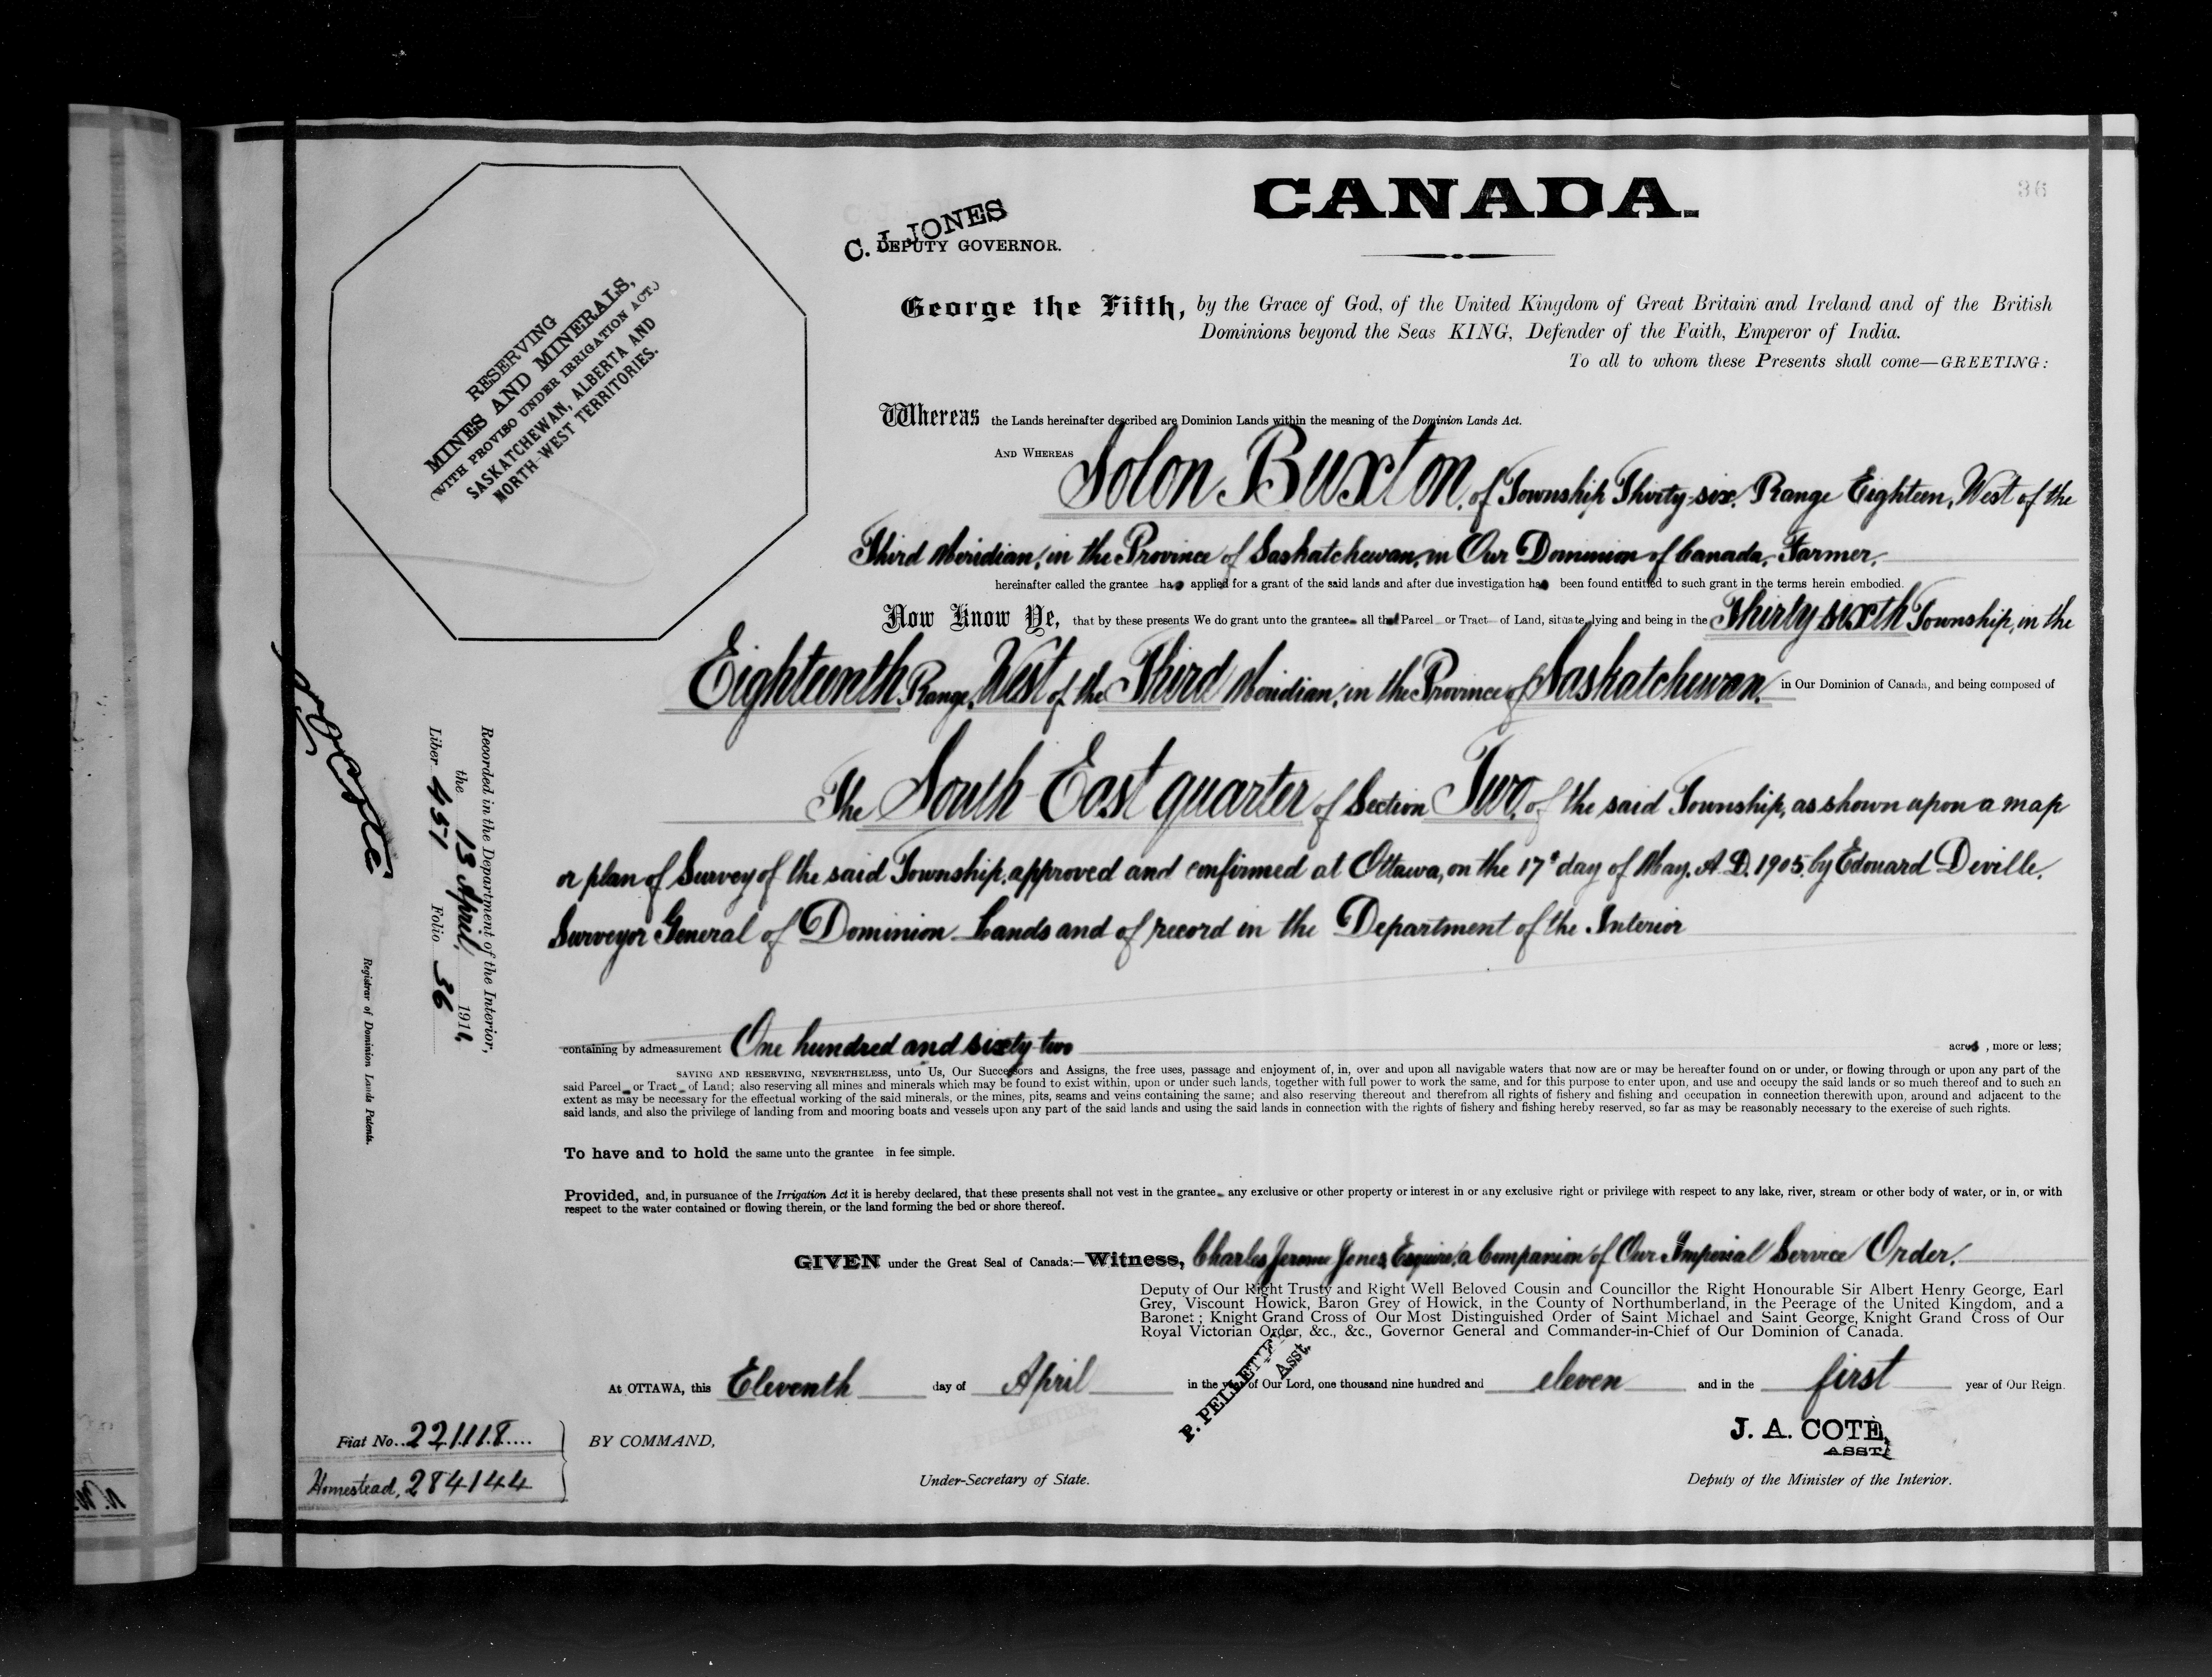 CANADA.
36
C. J. JONES
DEPUTY GOVERNOR.
RESERVING
MINES AND MINERALS,
(WITH PROVISO UNDER IRRIGATION ACT.)
SASKATCHEWAN, ALBERTA AND
NORTH-WEST TERRITORIES.
George the Fifth, by the Grace of God, of the United Kingdom of Great Britain and Ireland and of the British
Dominions beyond the Seas KING, Defender of the Faith, Emperor of India.
To all to whom these Presents shall come—GREETING:
Whereas the Lands hereinafter described are Dominion Lands within the meaning of the Dominion Lands Act.
AND WHEREAS Solon Buxton, of Township Thirty-six, Range Eighteen, West of the
Third Meridian, in the Province of Saskatchewan, in Our Dominion of Canada, Farmer,
hereinafter called the grantee has applied for a grant of the said lands and after due investigation has been found entitled to such grant in the terms herein embodied.
Now Know Ye, that by these presents We do grant unto the grantee all that Parcel or Tract of Land, situate, lying and being in the Thirty sixth Township, in the
Eighteenth Range, West of the Third Meridian, in the Province of Saskatchewan, in Our Dominion of Canada, and being composed of
The South East quarter of Section Two, of the said Township, as shown upon a map
or plan of Survey of the said Township, approved and confirmed at Ottawa, on the 17th day of May, A.D. 1905, by Edouard Deville,
Surveyor General of Dominion Lands and of record in the Department of the Interior
containing by admeasurement One hundred and sixty-two acres, more or less;
SAVING AND RESERVING, NEVERTHELESS, unto Us, Our Successors and Assigns, the free uses, passage and enjoyment of, in, over and upon all navigable waters that now are or may be hereafter found on or under, or flowing through or upon any part of the
said Parcel or Tract of Land; also reserving all mines and minerals which may be found to exist within, upon or under such lands, together with full power to work the same, and for this purpose to enter upon, and use and occupy the said lands or so much thereof and to such an
extent as may be necessary for the effectual working of the said minerals, or the mines, pits, seams and veins containing the same; and also reserving thereout and therefrom all rights of fishery and fishing and occupation in connection therewith upon, around and adjacent to the
said lands, and also the privilege of landing from and mooring boats and vessels upon any part of the said lands and using the said lands in connection with the rights of fishery and fishing hereby reserved, so far as may be reasonably necessary to the exercise of such rights.
To have and to hold the same unto the grantee in fee simple.
Provided, and, in pursuance of the Irrigation Act it is hereby declared, that these presents shall not vest in the grantee any exclusive or other property or interest in or any exclusive right or privilege with respect to any lake, river, stream or other body of water, or in, or with
respect to the water contained or flowing therein, or the land forming the bed or shore thereof.
GIVEN under the Great Seal of Canada:—Witness, Charles Jerome Jones, Esquire, a Companion of Our Imperial Service Order,
Deputy of Our Right Trusty and Right Well Beloved Cousin and Councillor the Right Honourable Sir Albert Henry George, Earl
Grey, Viscount Howick, Baron Grey of Howick, in the County of Northumberland, in the Peerage of the United Kingdom, and a
Baronet; Knight Grand Cross of Our Most Distinguished Order of Saint Michael and Saint George, Knight Grand Cross of Our
Royal Victorian Order, &c., &c., Governor General and Commander-in-Chief of Our Dominion of Canada.
At OTTAWA, this Eleventh day of April in the year of Our Lord, one thousand nine hundred and eleven and in the first year of Our Reign.
P. PELLETIER
Asst.
J. A. COTE,
ASST.
Fiat No. 221118
Homestead, 284144
BY COMMAND,
Under-Secretary of State.
Deputy of the Minister of the Interior.
Recorded in the Department of the Interior,
the 13 April, 1911,
Liber 451 Folio 36
Registrar of Dominion Lands Patents.